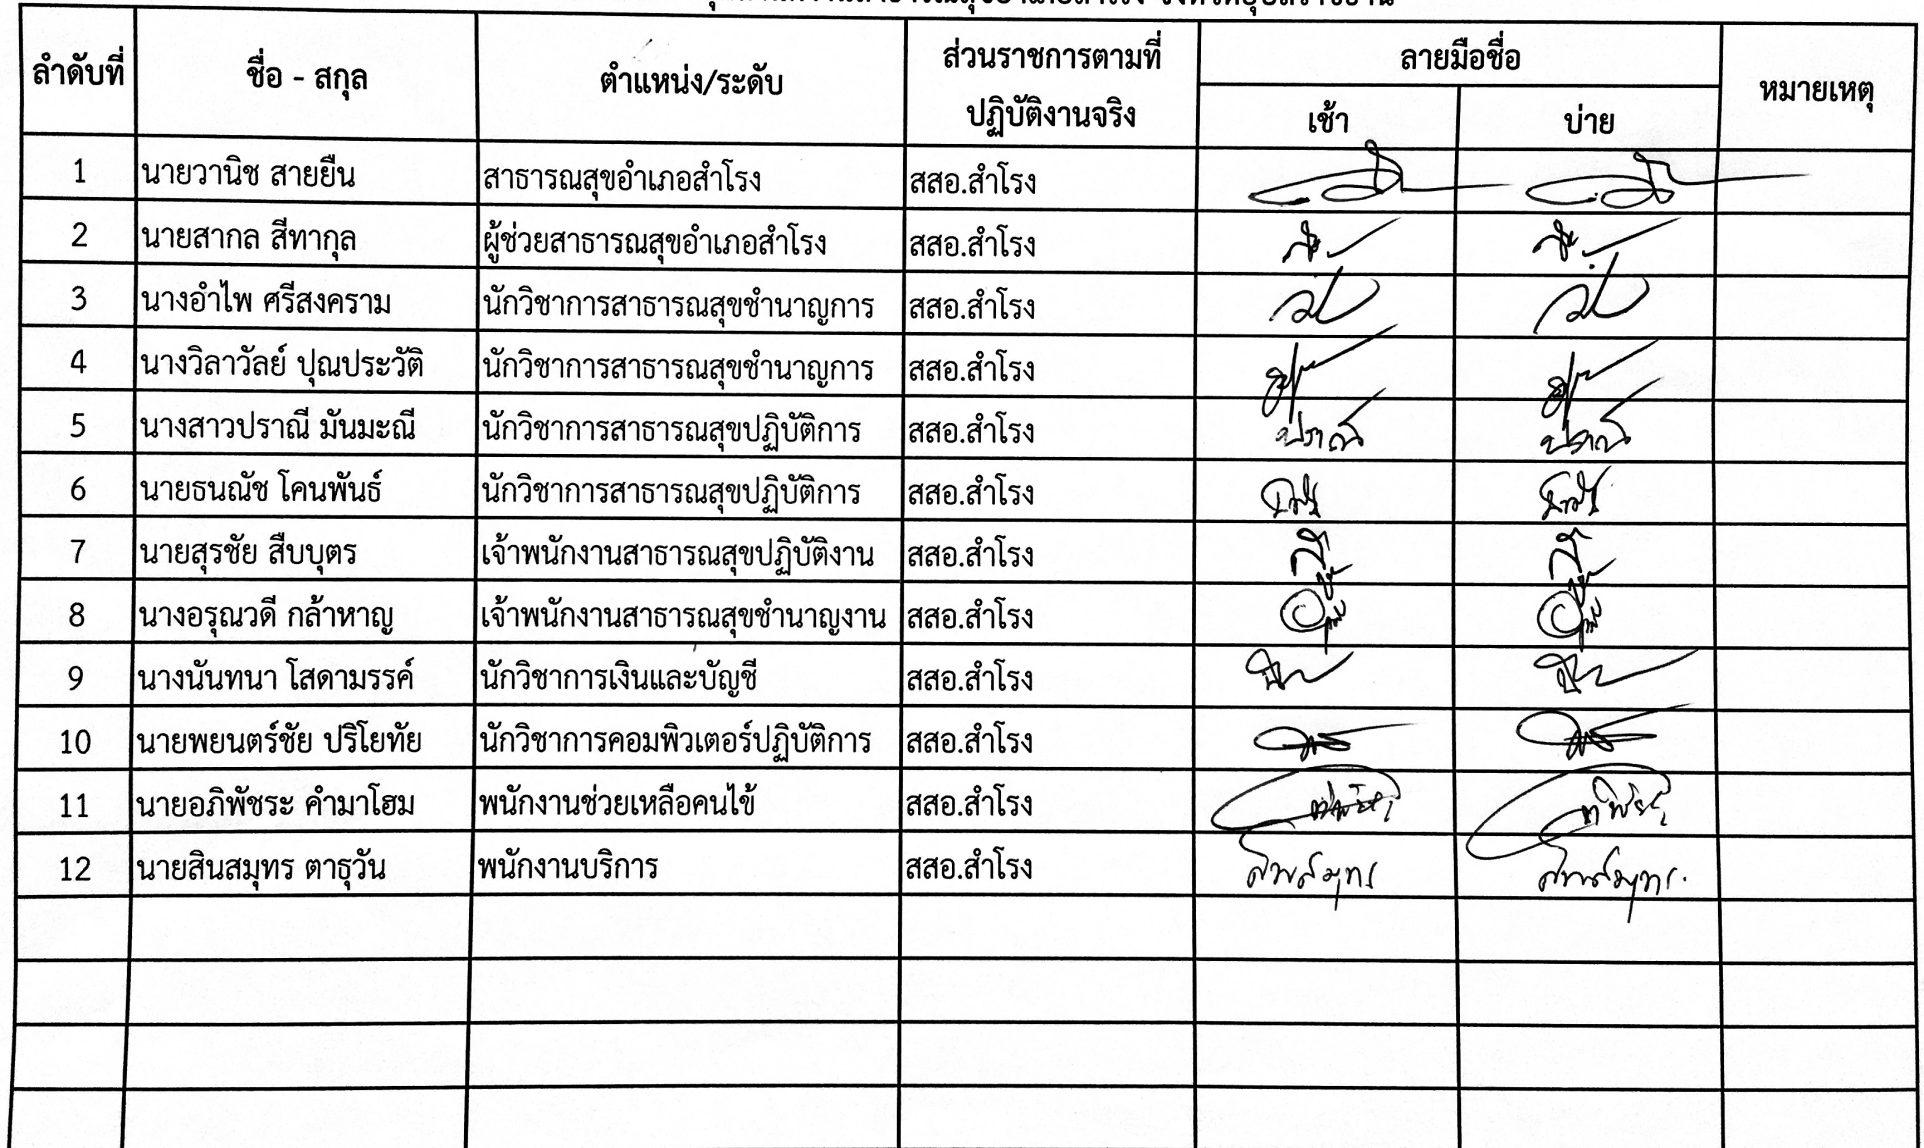 ลำดับที่ ชื่อ - สกุล ตำแหน่ง/ระดับ ส่วนราชการตามที่ปฏิบัติงานจริง ลายมือชื่อ หมายเหตุ
เช้า บ่าย
1 นายวานิช สายยืน สาธารณสุขอำเภอสำโรง สสอ.สำโรง
2 นายสากล สีทากุล ผู้ช่วยสาธารณสุขอำเภอสำโรง สสอ.สำโรง
3 นางอำไพ ศรีสงคราม นักวิชาการสาธารณสุขชำนาญการ สสอ.สำโรง
4 นางวิลาวัลย์ ปุณประวัติ นักวิชาการสาธารณสุขชำนาญการ สสอ.สำโรง
5 นางสาวปราณี มันมะณี นักวิชาการสาธารณสุขปฏิบัติการ สสอ.สำโรง ปราณี ปราณี
6 นายธนณัช โคนพันธ์ นักวิชาการสาธารณสุขปฏิบัติการ สสอ.สำโรง
7 นายสุรชัย สืบบุตร เจ้าพนักงานสาธารณสุขปฏิบัติงาน สสอ.สำโรง
8 นางอรุณวดี กล้าหาญ เจ้าพนักงานสาธารณสุขชำนาญงาน สสอ.สำโรง
9 นางนันทนา โสดามรรค์ นักวิชาการเงินและบัญชี สสอ.สำโรง
10 นายพยนตร์ชัย ปริโยทัย นักวิชาการคอมพิวเตอร์ปฏิบัติการ สสอ.สำโรง
11 นายอภิพัชระ คำมาโฮม พนักงานช่วยเหลือคนไข้ สสอ.สำโรง
12 นายสินสมุทร ตาธุวัน พนักงานบริการ สสอ.สำโรง สินสมุทร สินสมุทร